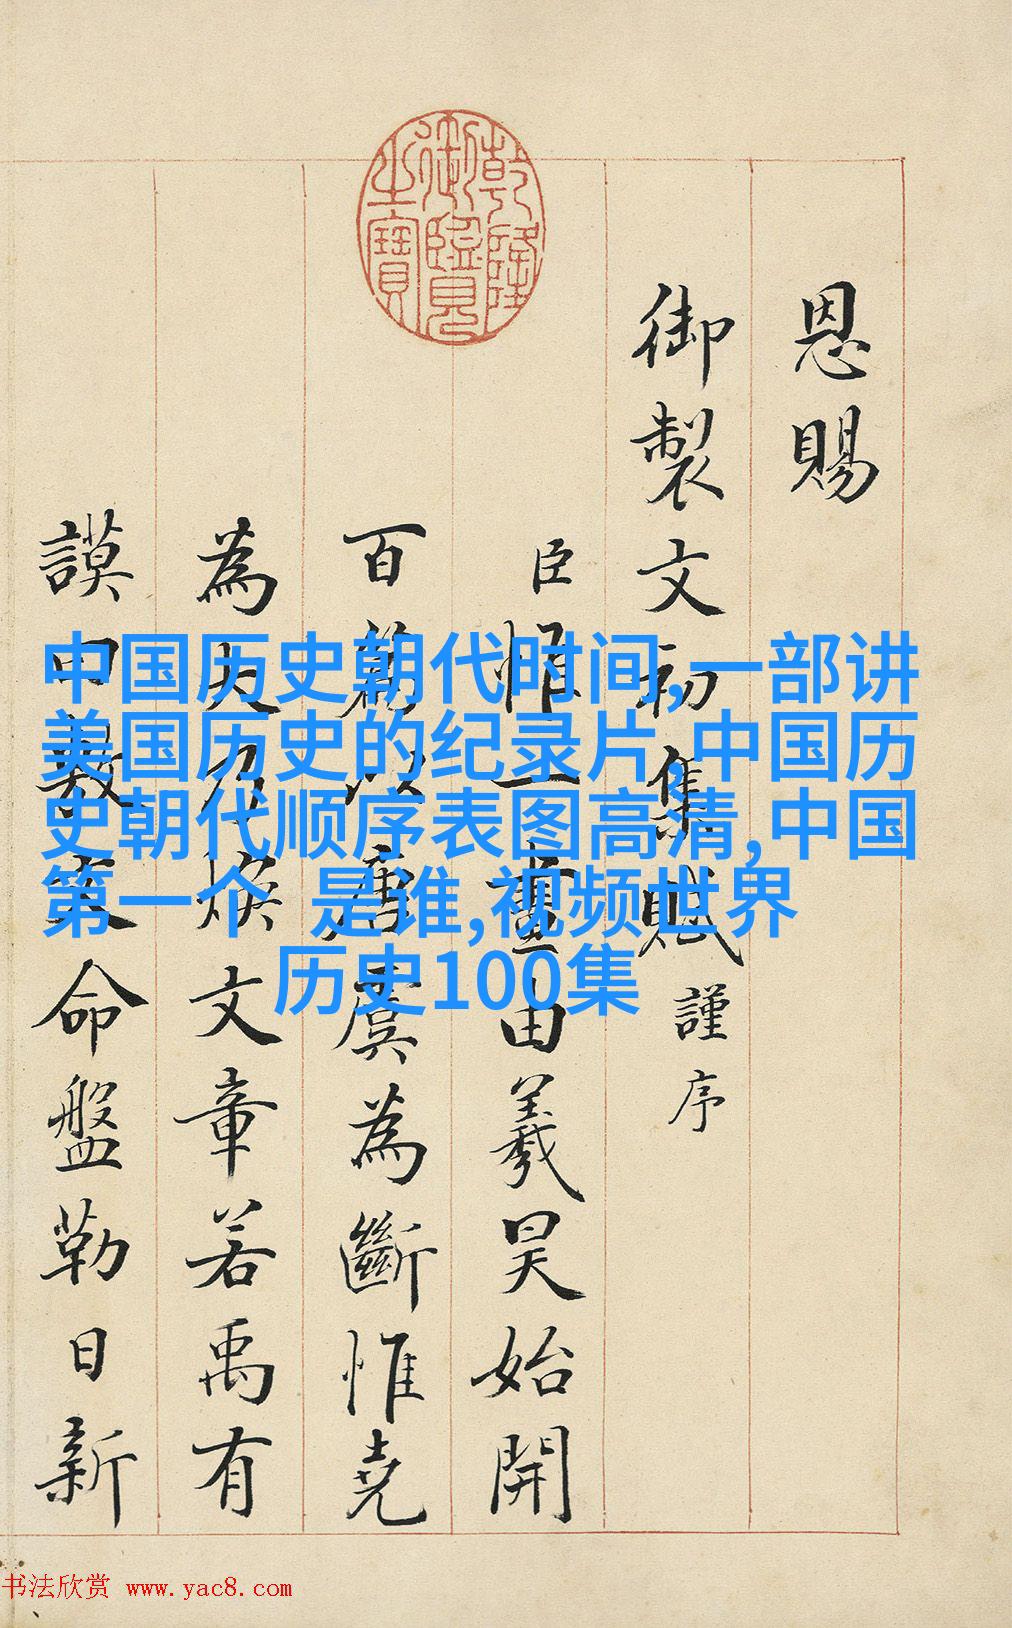 乾隆御覽之寶
恩賜
御製文初集賦謹序
臣惟一畫由羲昊始開
百篇以唐虞為斷惟堯
為大乃煥文章若禹有
謨曰敷文命盤勒日新
中国历史朝代时间,一部讲
美国历史的纪录片,中国历
史朝代顺序表图高清,中国
第一个 是谁,视频世界
历史100集
书法欣赏 www.yac8.com